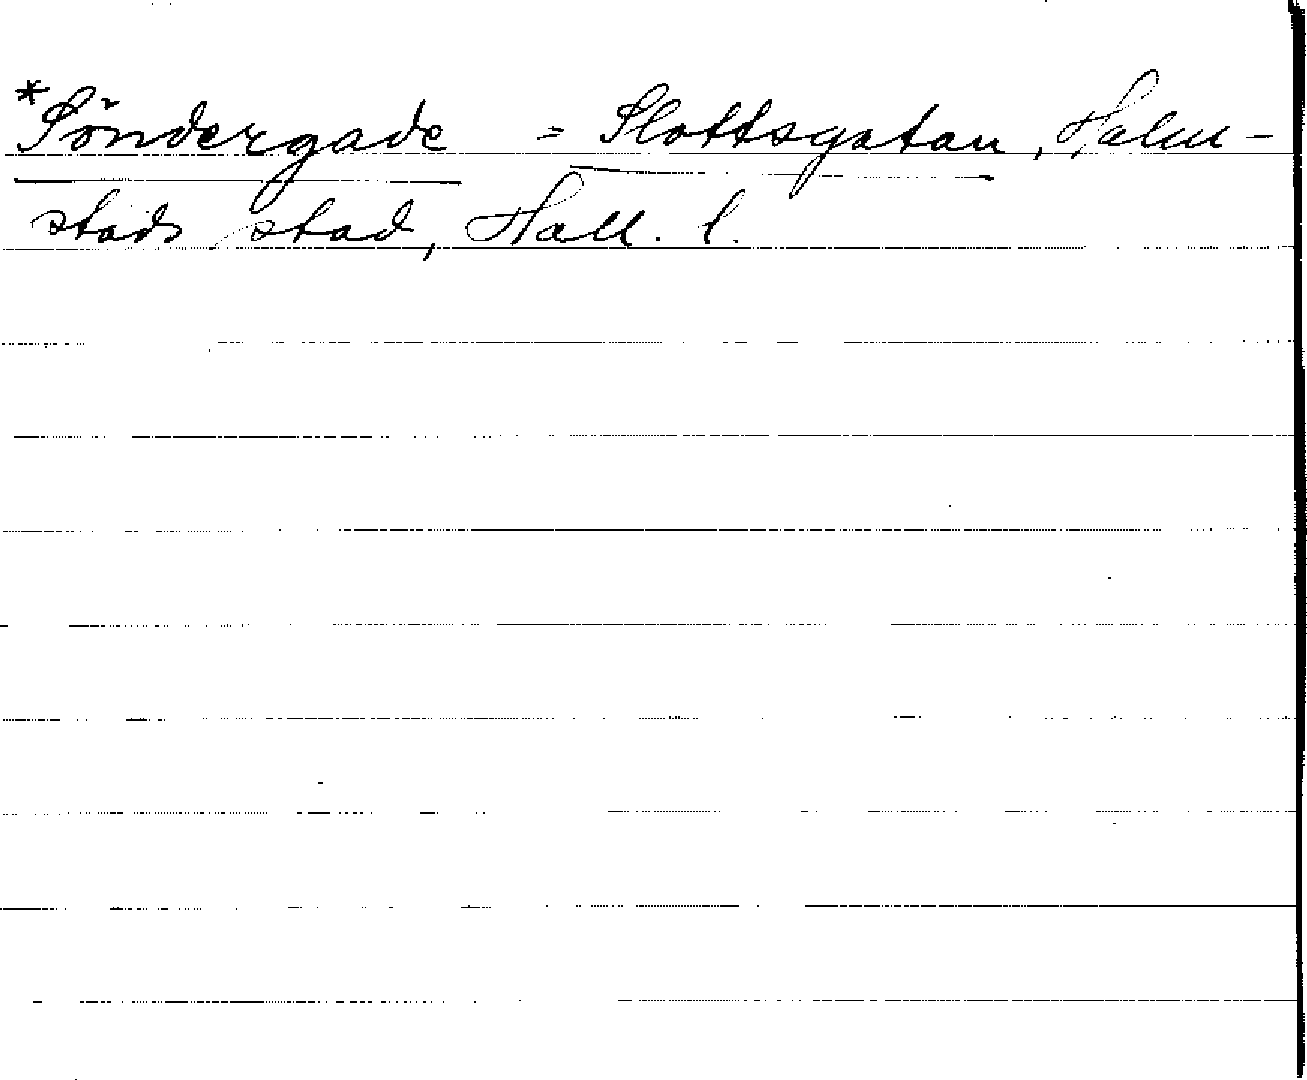 *Söndergade = Slottsgatan, Halm-
stads stad, Hall. l.